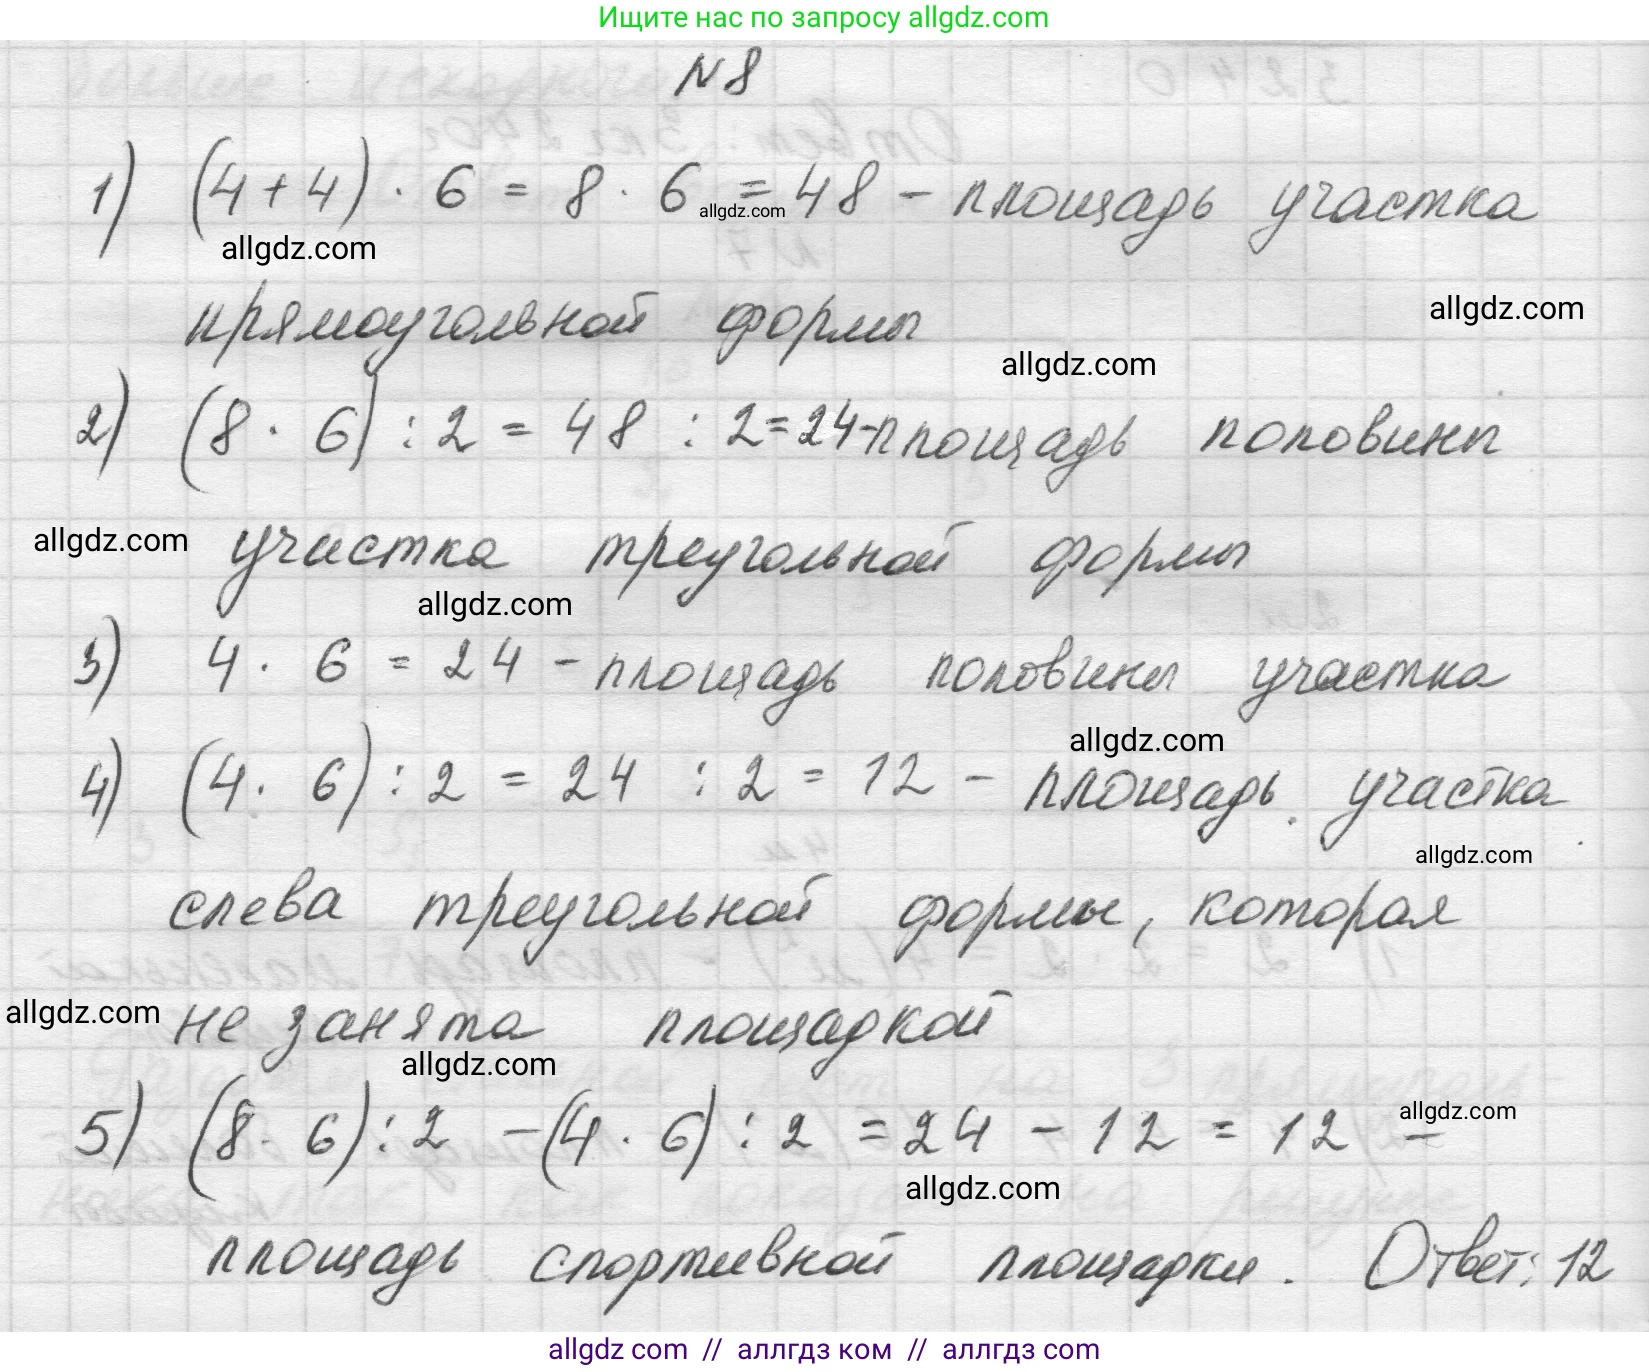 Ищите нас по запросу allgdz.com
N8
1) (4+4) · 6 = 8 · 6 = 48 - площадь участка
allgdz.com
allgdz.com
прямоугольной формы
allgdz.com
allgdz.com
2) (8 · 6) : 2 = 48 : 2 = 24 - площадь половины
участка треугольной формы
allgdz.com
allgdz.com
3) 4 · 6 = 24 - площадь половины участка
allgdz.com
4) (4 · 6) : 2 = 24 : 2 = 12 - площадь участка
allgdz.com
слева треугольной формы, которая
не занята площадкой
allgdz.com
allgdz.com
5) (8 · 6) : 2 - (4 · 6) : 2 = 24 - 12 = 12 -
allgdz.com
allgdz.com
площадь спортивной площадки. Ответ: 12
allgdz.com // аллгдз ком // аллгдз.com